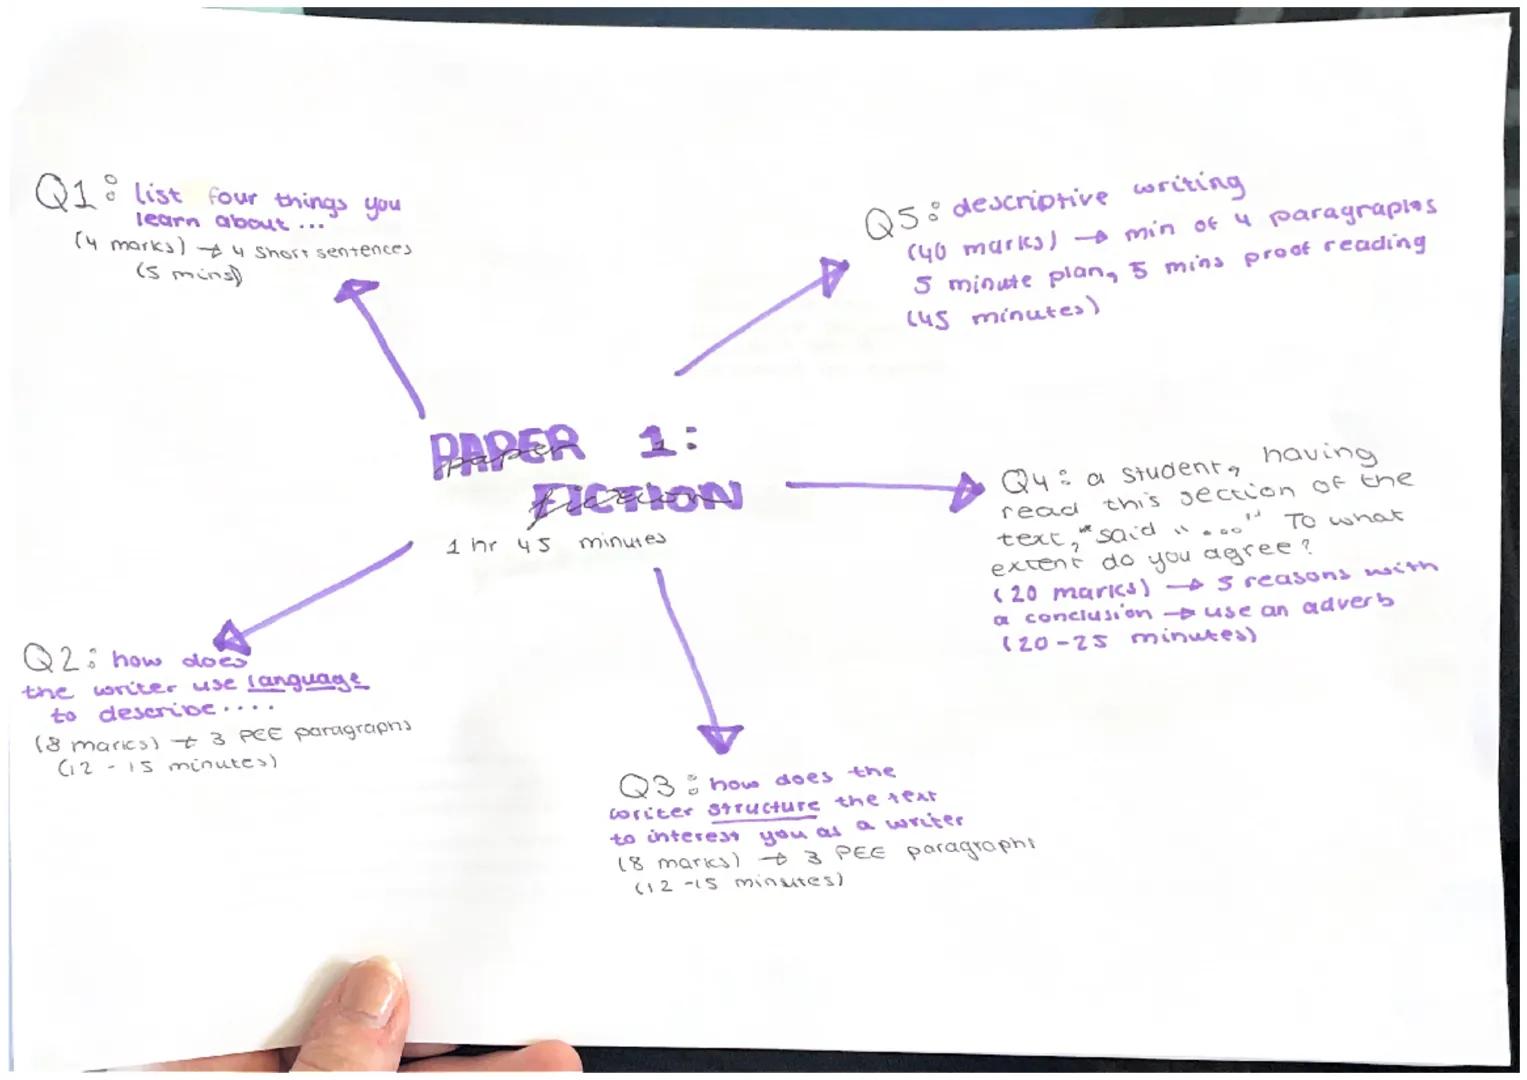 PAPER 1:
paper
FICTION
fiction
1 hr 45 minutes
Q1: list four things you
learn about...
(4 marks) → 4 short sentences
(5 mins)
Q2: how does
the writer use language
to describe....
(8 marks) → 3 PEE paragraphs
(12 - 15 minutes)
Q3: how does the
writer structure the text
to interest you as a writer
(8 marks) → 3 PEE paragraphs
(12 -15 minutes)
Q4: a student, having
read this section of the
text, "said "..." To what
extent do you agree?
(20 marks) → 3 reasons with
a conclusion → use an adverb
(20-25 minutes)
Q5: descriptive writing
(40 marks) → min of 4 paragraphs
5 minute plan, 5 mins proof reading
(45 minutes)